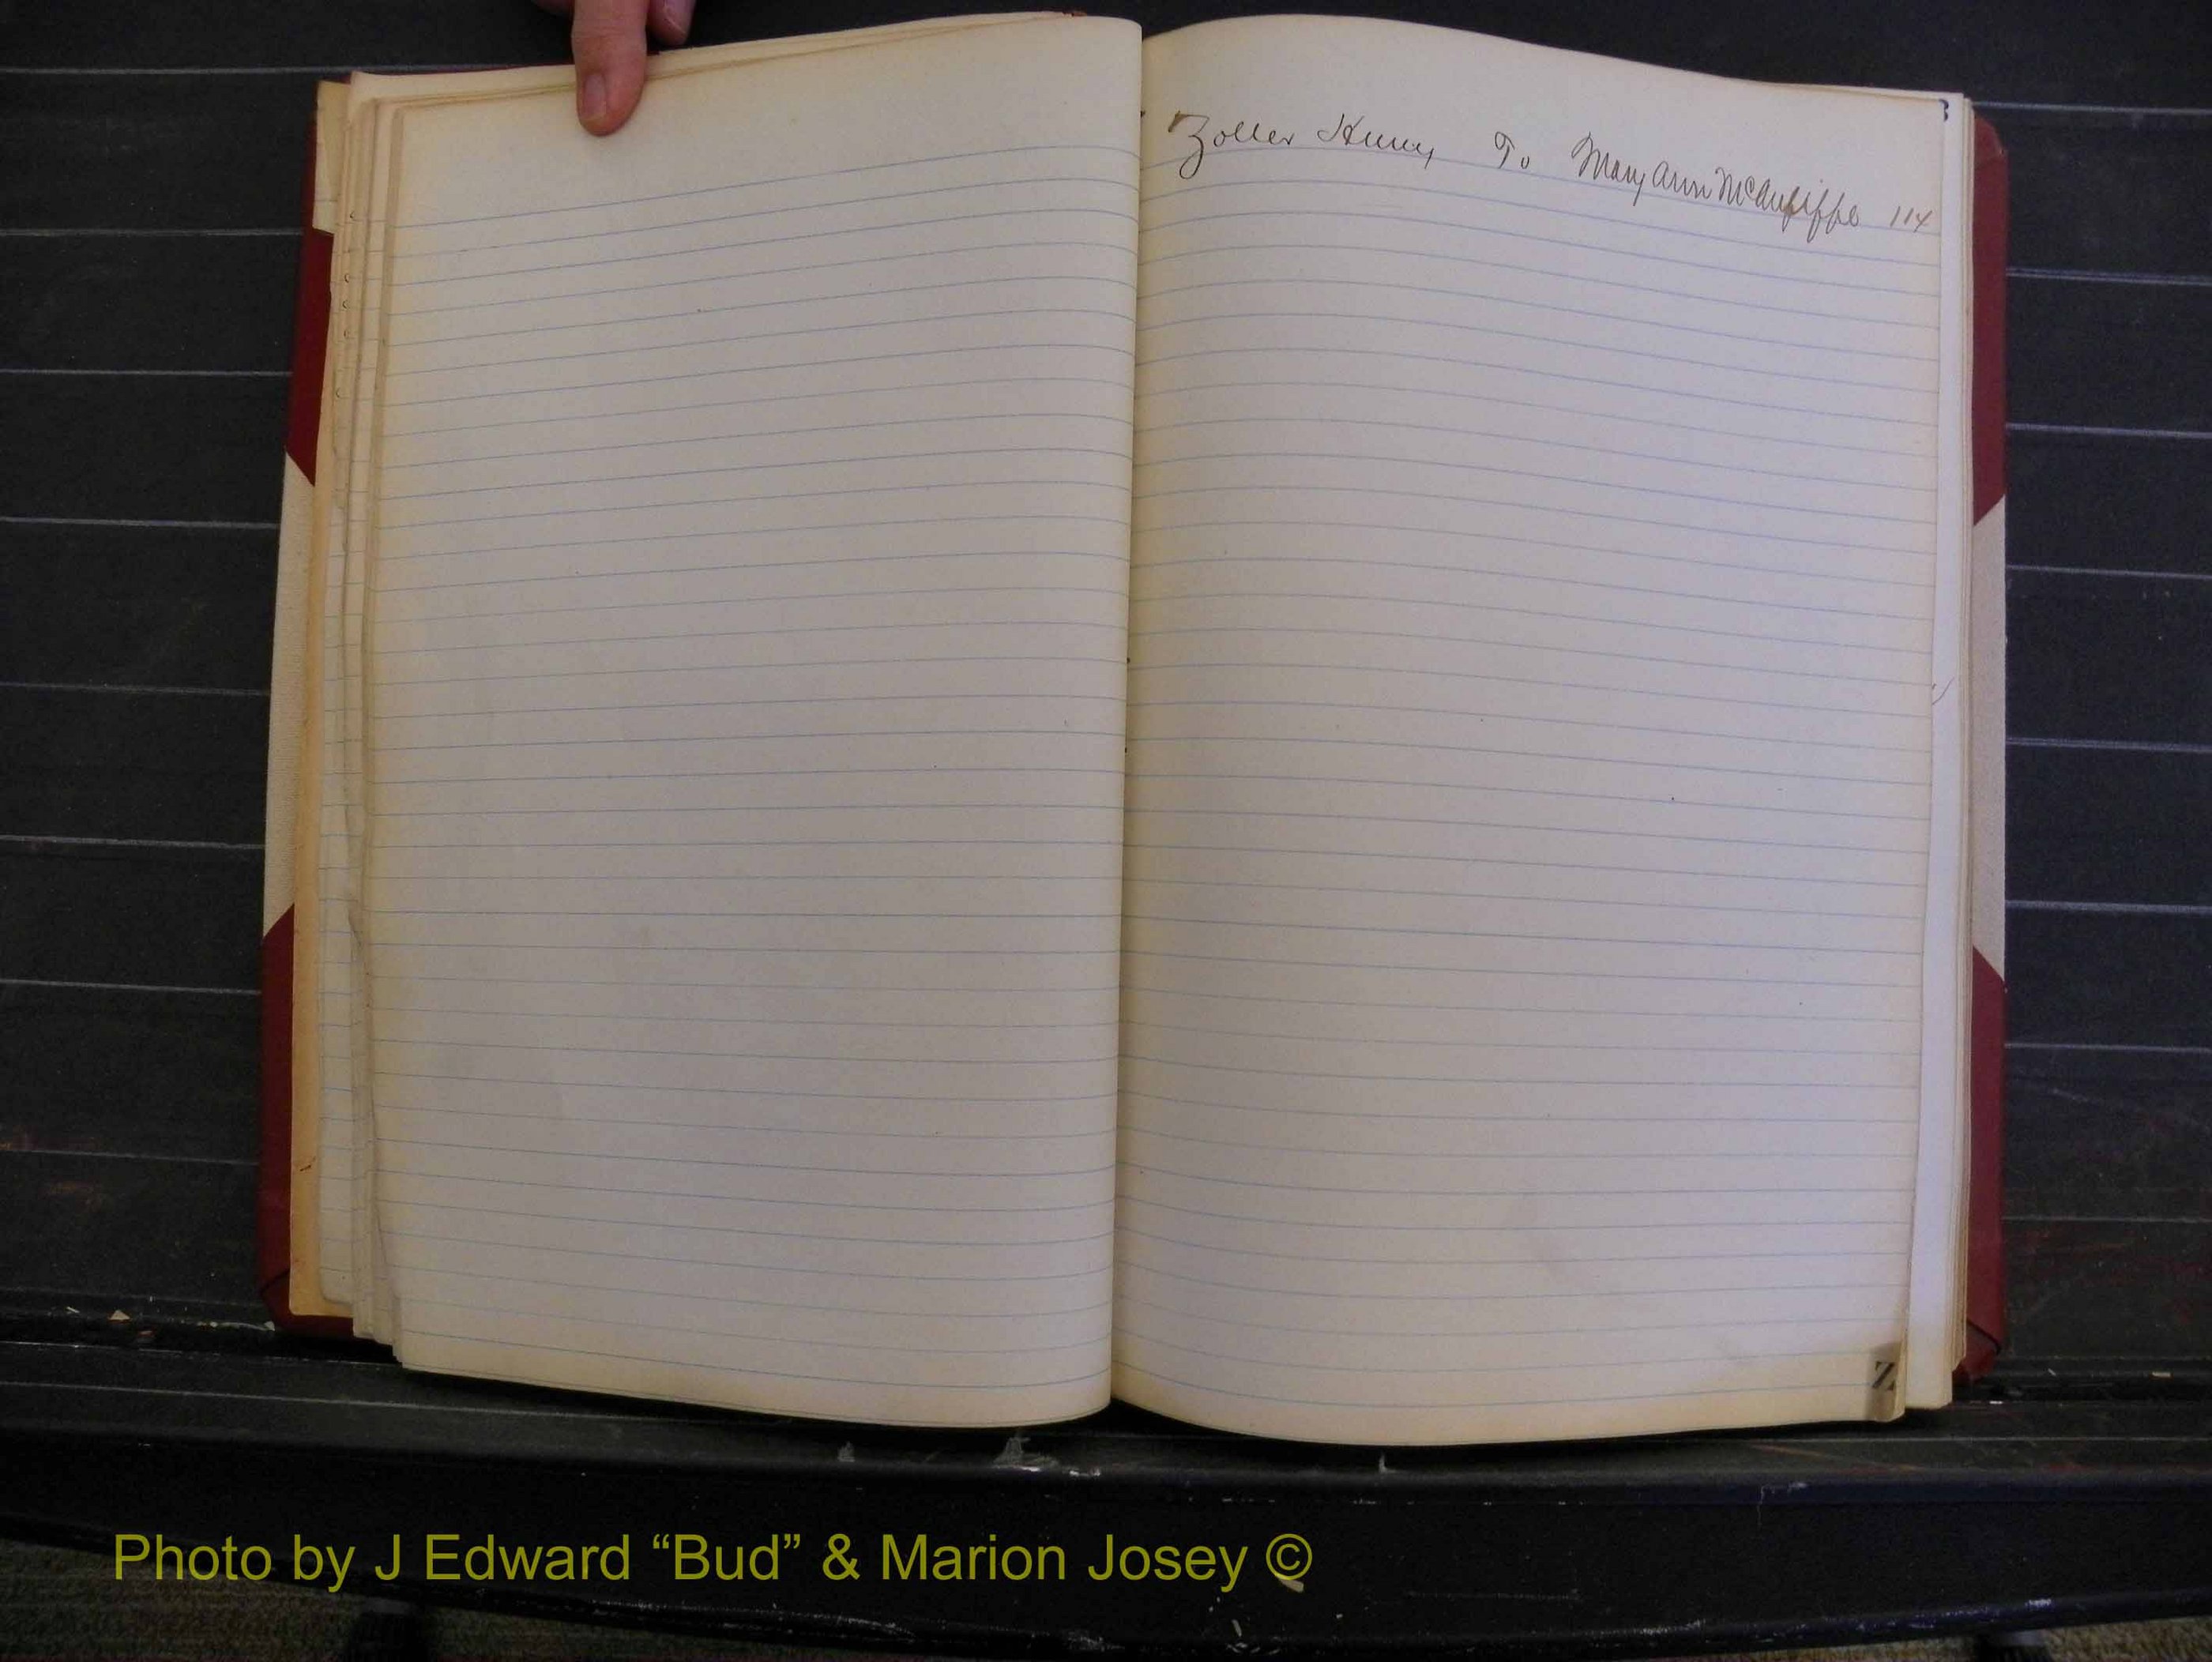 3
Zoller Henry To Mary Ann McAuliffe 114
Z
Photo by J Edward “Bud” & Marion Josey ©